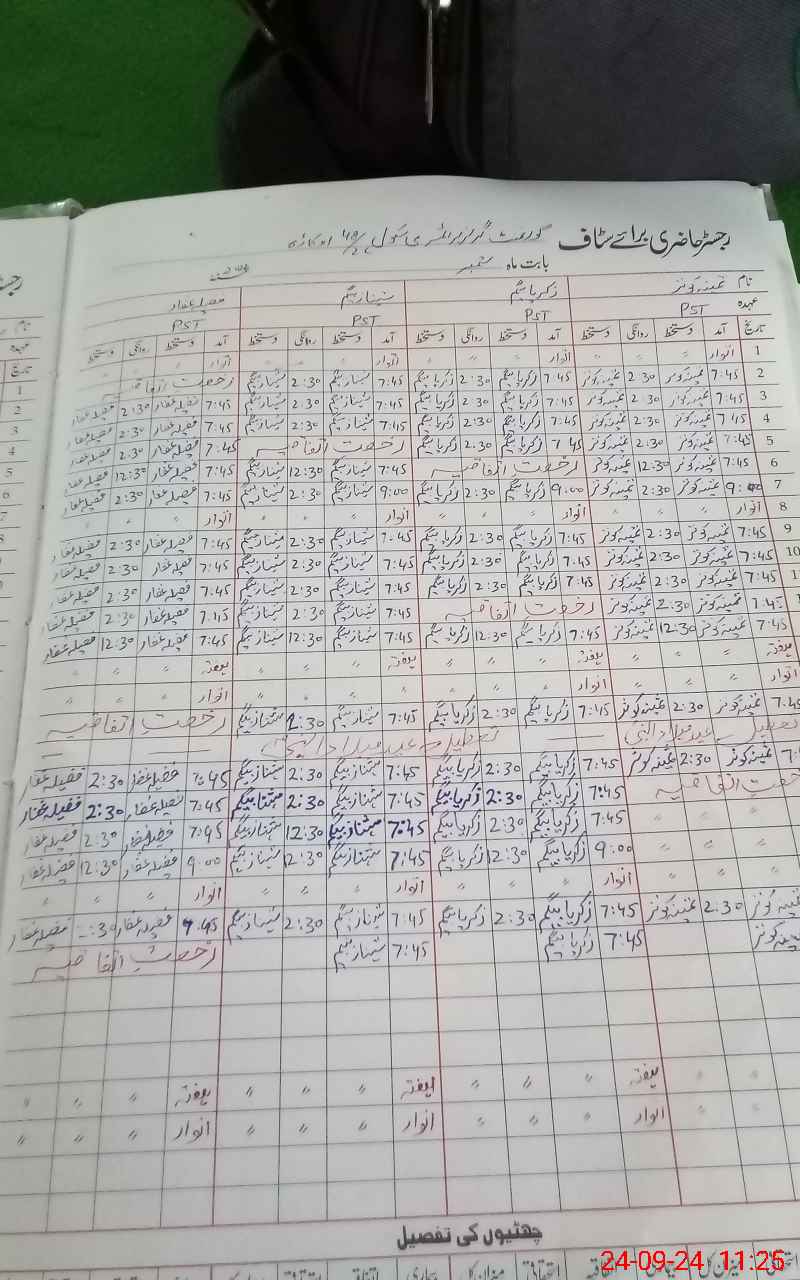 رجسٹر حاضری برائے سٹاف گورنمنٹ گرلز پرائمری سکول 49/2 اوکاڑہ
بابت ماہ ستمبر
نام ثمینہ کوثر زکریا بیگم شہناز بیگم فضیلہ غفار
عہدہ PST PST PST PST
تاریخ آمد دستخط روانگی دستخط آمد دستخط روانگی دستخط آمد دستخط روانگی دستخط آمد دستخط روانگی دستخط
1 اتوار 〃 〃 〃 اتوار 〃 〃 〃 اتوار 〃 〃 〃 اتوار 〃 〃 〃
2 7:45 ثمینہ کوثر 2:30 ثمینہ کوثر 7:45 زکریا بیگم 2:30 زکریا بیگم 7:45 شہناز بیگم 2:30 شہناز بیگم رخصت اتفاقیہ
3 7:45 ثمینہ کوثر 2:30 ثمینہ کوثر 7:45 زکریا بیگم 2:30 زکریا بیگم 7:45 شہناز بیگم 2:30 شہناز بیگم 7:45 فضیلہ غفار 2:30 فضیلہ غفار
4 7:45 ثمینہ کوثر 2:30 ثمینہ کوثر 7:45 زکریا بیگم 2:30 زکریا بیگم 7:45 شہناز بیگم 2:30 شہناز بیگم 7:45 فضیلہ غفار 2:30 فضیلہ غفار
5 7:45 ثمینہ کوثر 2:30 ثمینہ کوثر 7:45 زکریا بیگم 2:30 زکریا بیگم رخصت اتفاقیہ 7:45 فضیلہ غفار 2:30 فضیلہ غفار
6 7:45 ثمینہ کوثر 12:30 ثمینہ کوثر رخصت اتفاقیہ 7:45 شہناز بیگم 12:30 شہناز بیگم 7:45 فضیلہ غفار 12:30 فضیلہ غفار
7 9:00 ثمینہ کوثر 2:30 ثمینہ کوثر 9:00 زکریا بیگم 2:30 زکریا بیگم 9:00 شہناز بیگم 2:30 شہناز بیگم 7:45 فضیلہ غفار 2:30 فضیلہ غفار
8 اتوار 〃 〃 〃 اتوار 〃 〃 〃 اتوار 〃 〃 〃 اتوار 〃 〃 〃
9 7:45 ثمینہ کوثر 2:30 ثمینہ کوثر 7:45 زکریا بیگم 2:30 زکریا بیگم 7:45 شہناز بیگم 2:30 شہناز بیگم 7:45 فضیلہ غفار 2:30 فضیلہ غفار
10 7:45 ثمینہ کوثر 2:30 ثمینہ کوثر 7:45 زکریا بیگم 2:30 زکریا بیگم 7:45 شہناز بیگم 2:30 شہناز بیگم 7:45 فضیلہ غفار 2:30 فضیلہ غفار
7:45 ثمینہ کوثر 2:30 ثمینہ کوثر 7:45 زکریا بیگم 2:30 زکریا بیگم 7:45 شہناز بیگم 2:30 شہناز بیگم 7:45 فضیلہ غفار 2:30 فضیلہ غفار
7:45 ثمینہ کوثر 2:30 ثمینہ کوثر رخصت اتفاقیہ 7:45 شہناز بیگم 2:30 شہناز بیگم 7:45 فضیلہ غفار 2:30 فضیلہ غفار
7:45 ثمینہ کوثر 12:30 ثمینہ کوثر 7:45 زکریا بیگم 12:30 زکریا بیگم 7:45 شہناز بیگم 12:30 شہناز بیگم 7:45 فضیلہ غفار 12:30 فضیلہ غفار
ہفتہ 〃 〃 〃 ہفتہ 〃 〃 〃 ہفتہ 〃 〃 〃 ہفتہ 〃 〃 〃
اتوار 〃 〃 〃 اتوار 〃 〃 〃 اتوار 〃 〃 〃 اتوار 〃 〃 〃
ثمینہ کوثر 2:30 ثمینہ کوثر 7:45 زکریا بیگم 2:30 زکریا بیگم 7:45 شہناز بیگم 2:30 شہناز بیگم رخصت اتفاقیہ
تعطیل عید میلاد النبی تعطیل عید میلاد النبی
ثمینہ کوثر 2:30 ثمینہ کوثر 7:45 زکریا بیگم 2:30 زکریا بیگم 7:45 شہناز بیگم 2:30 شہناز بیگم 7:45 فضیلہ غفار 2:30 فضیلہ غفار
رخصت اتفاقیہ 7:45 زکریا بیگم 2:30 زکریا بیگم 7:45 شہناز بیگم 2:30 شہناز بیگم 7:45 فضیلہ غفار 2:30 فضیلہ غفار
〃 〃 〃 7:45 زکریا بیگم 2:30 زکریا بیگم 7:45 شہناز بیگم 12:30 شہناز بیگم 7:45 فضیلہ غفار 2:30 فضیلہ غفار
〃 〃 〃 9:00 زکریا بیگم 12:30 زکریا بیگم 7:45 شہناز بیگم 2:30 شہناز بیگم 9:00 فضیلہ غفار 12:30 فضیلہ غفار
〃 〃 〃 اتوار 〃 〃 〃 اتوار 〃 〃 〃 اتوار 〃 〃 〃
ثمینہ کوثر 2:30 ثمینہ کوثر 7:45 زکریا بیگم 2:30 زکریا بیگم 7:45 شہناز بیگم 2:30 شہناز بیگم 7:45 فضیلہ غفار 2:30 فضیلہ غفار
ثمینہ کوثر 7:45 زکریا بیگم 7:45 شہناز بیگم رخصت اتفاقیہ
〃 〃 ہفتہ 〃 〃 〃 ہفتہ 〃 〃 〃 ہفتہ 〃 〃 〃
〃 〃 اتوار 〃 〃 〃 اتوار 〃 〃 〃 اتوار 〃 〃 〃
چھٹیوں کی تفصیل
24-09-24 11:25